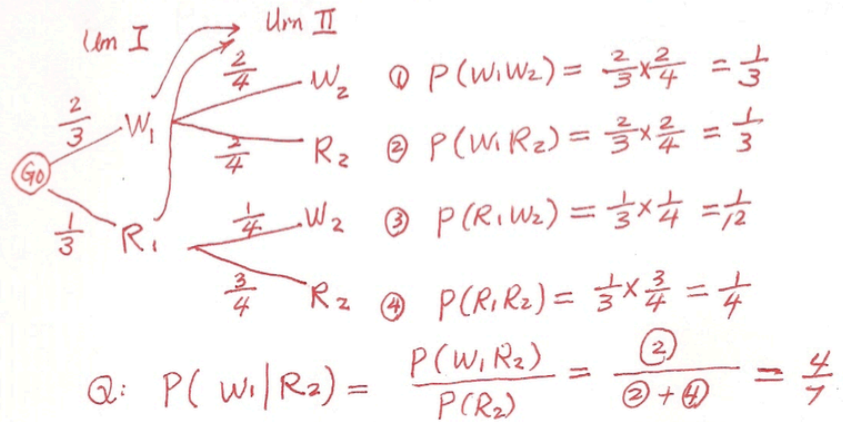 Urn I Urn II
2/3 W₁ 2/4 W₂ ① P(W₁W₂) = 2/3 × 2/4 = 1/3
2/4 R₂ ② P(W₁R₂) = 2/3 × 2/4 = 1/3
Go
1/3 R₁ 1/4 W₂ ③ P(R₁W₂) = 1/3 × 1/4 = 1/12
3/4 R₂ ④ P(R₁R₂) = 1/3 × 3/4 = 1/4
Q: P(W₁|R₂) = P(W₁R₂)/P(R₂) = ②/②+④ = 4/7